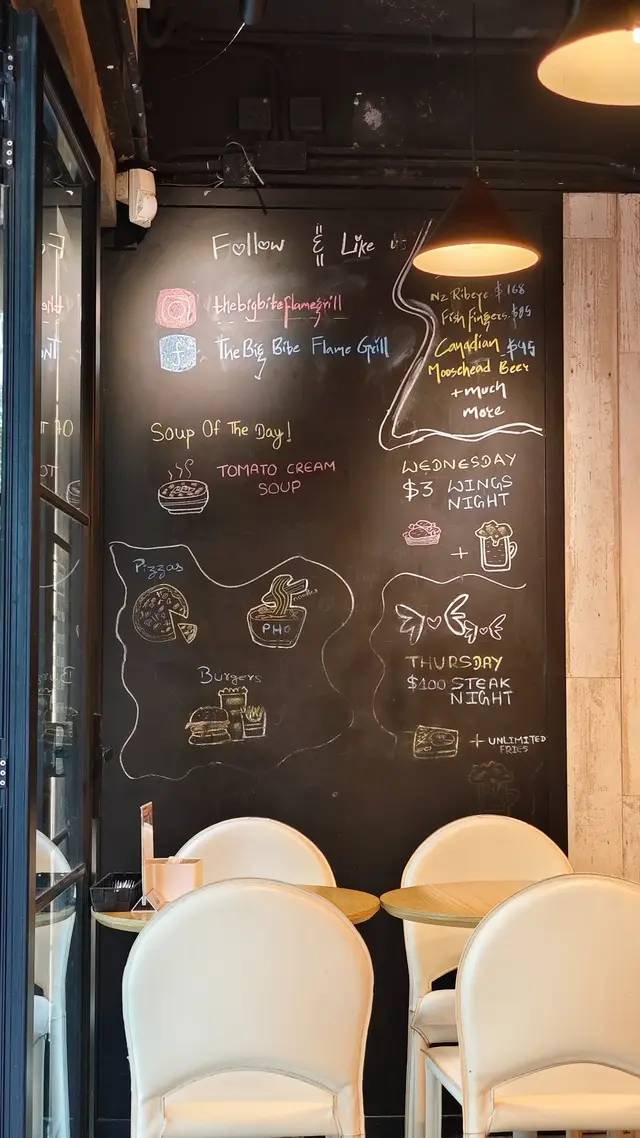 Follow & Like us
thebigbiteflamegrill
The Big Bite Flame Grill
NZ Ribeye $168
Fish fingers $85
Canadian $45
Moosehead Beer
+ much
more
Soup Of The Day!
TOMATO CREAM
SOUP
WEDNESDAY
$3 WINGS
NIGHT
+
Pizzas
noodles
PHO
Burgers
THURSDAY
$100 STEAK
NIGHT
+ UNLIMITED
FRIES